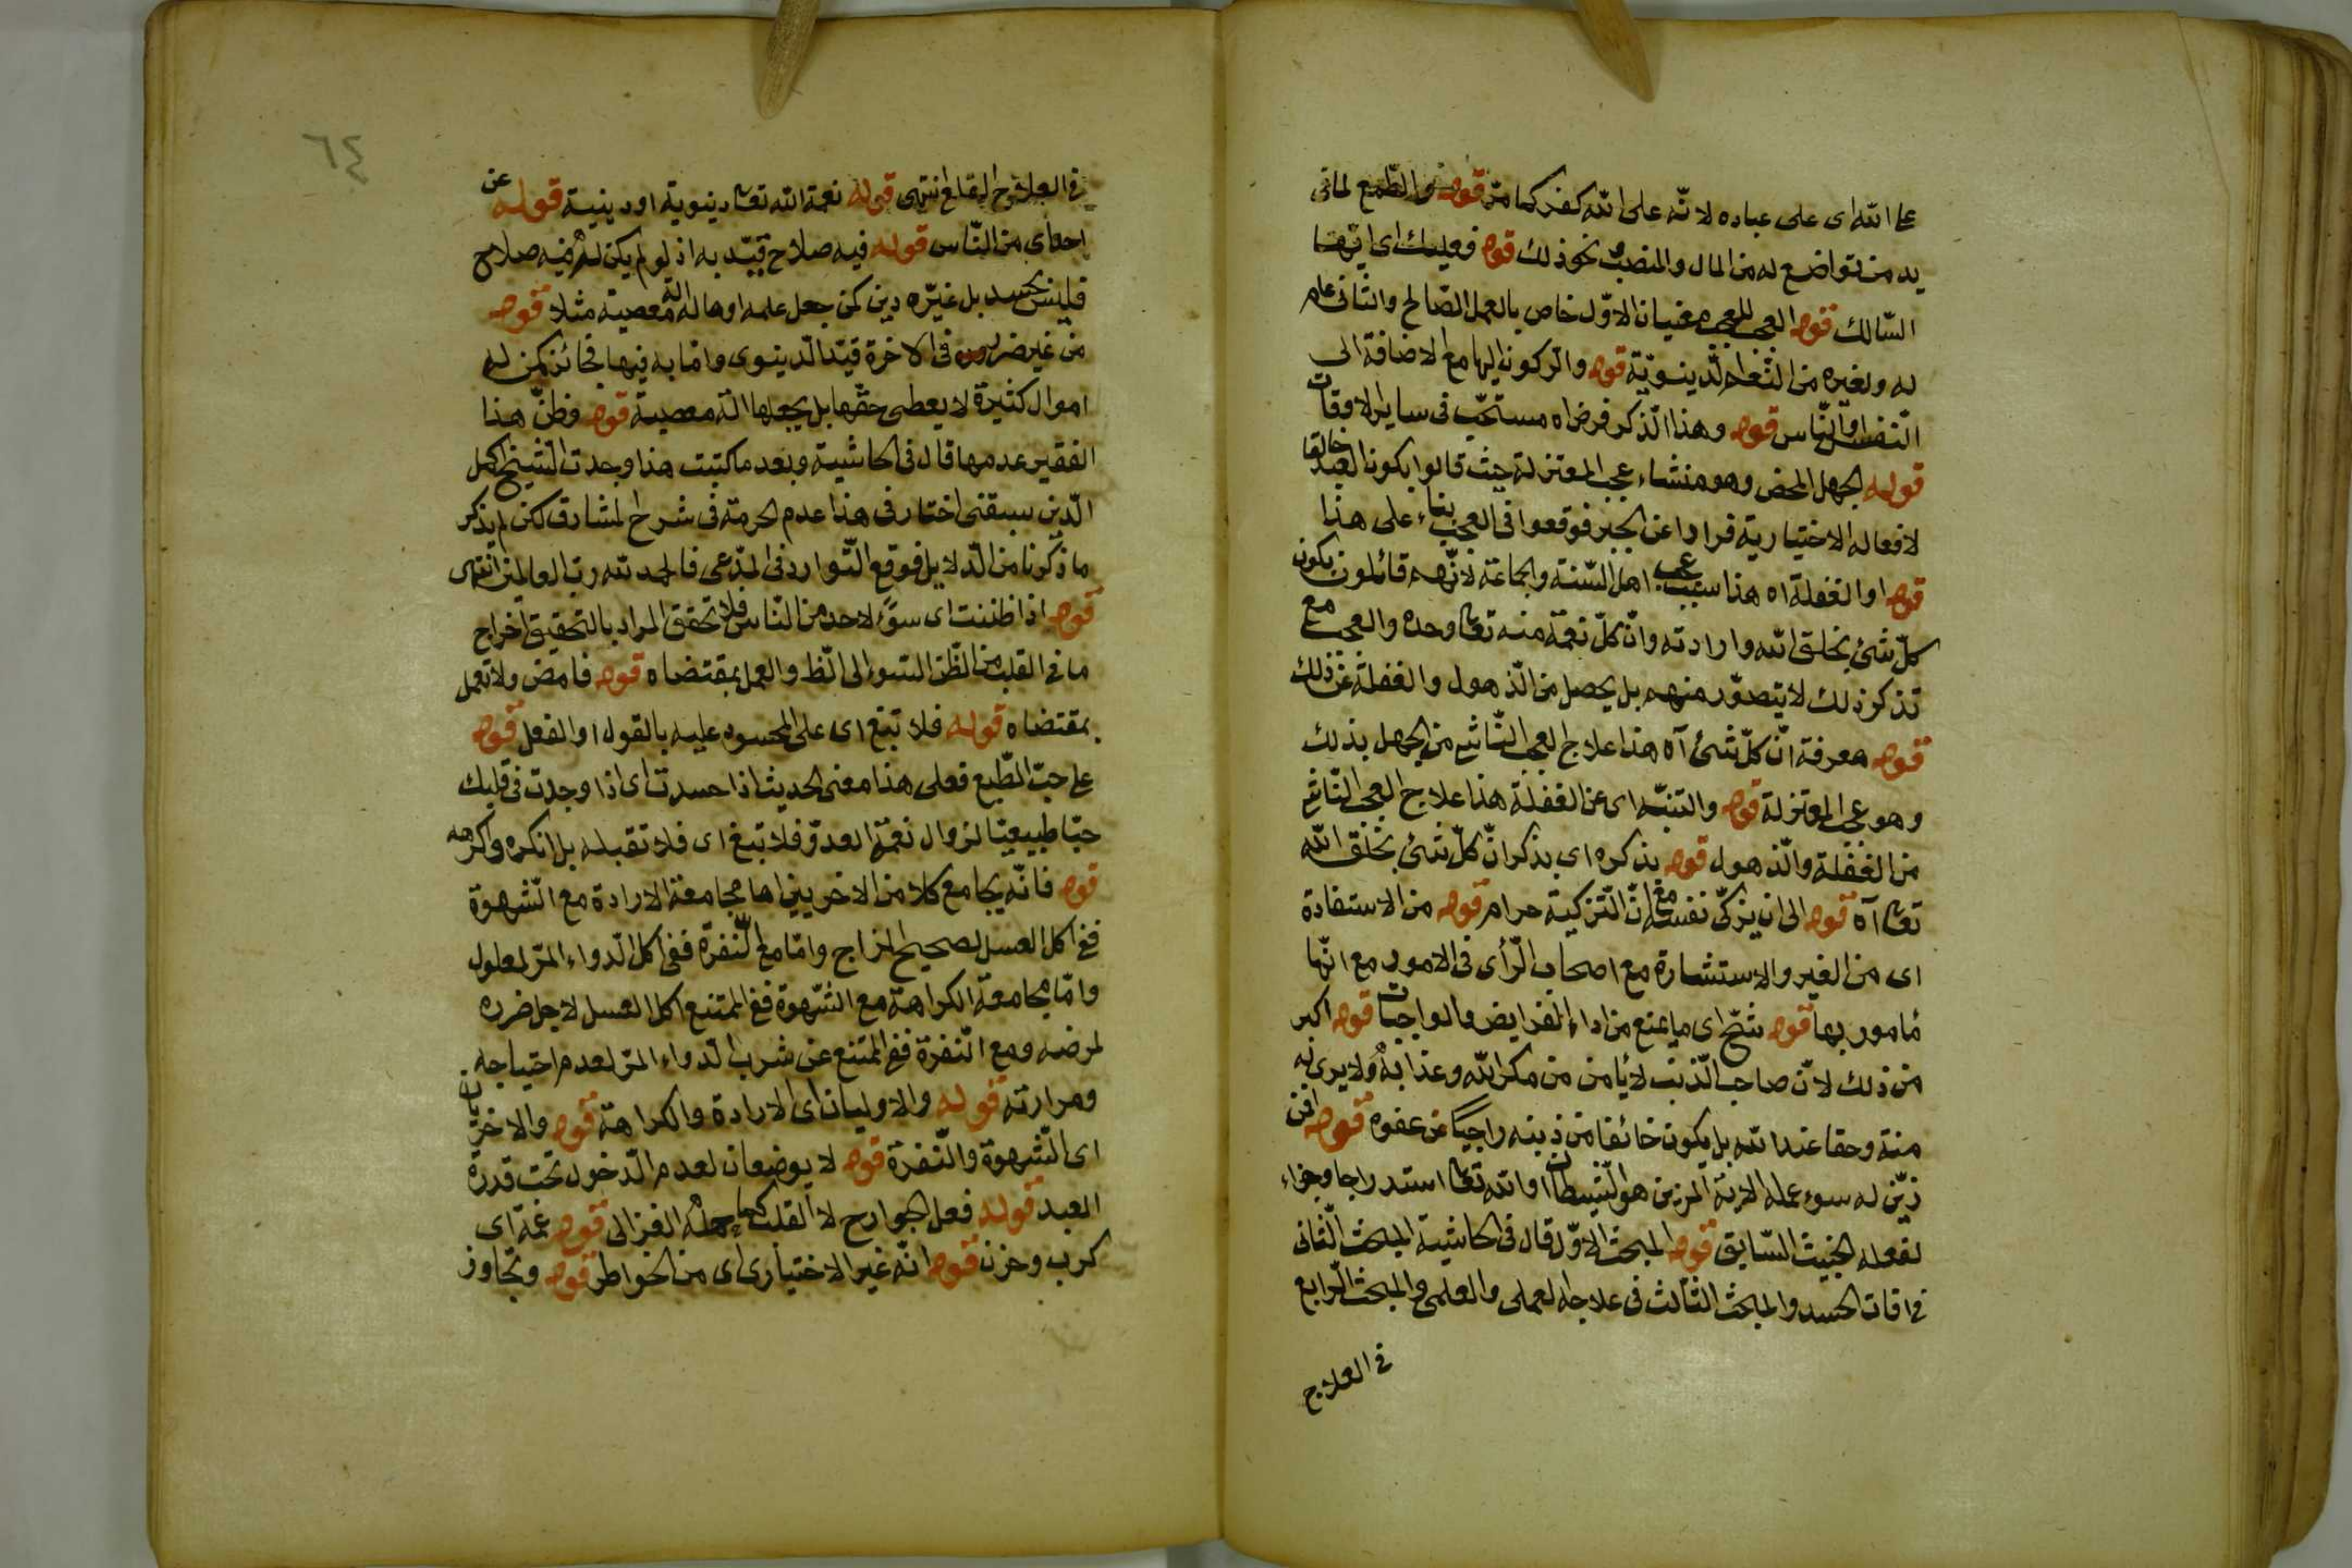 على الله اى على عباده لانه على الله كفر كما مرّ قوله والطّمع لما فى
يد من تواضع له من المال والمنصب نحو ذلك قوله فعليك اى ايّها
السّالك قوله العجب للعجب معنيان الاوّل خاص بالعمل الصّالح والثانى عام
له ولغيره من النّعم الدّينويّة قوله والركون اليها مع الاضافة الى
النّفس او النّاس قوله وهذا الذّكر فرض اه مستحبّ فى ساير الاوقات
قوله الجهل المحض وهو منشاء عجب المعتزلة حيث قالوا بكون العبد خالقا
لافعاله الاختيارية فرارا عن الجبر فوقعوا فى العجب بناء على هذا
قوله او الغفلة اه هذا سبب عجب اهل السّنة والجماعة لانّهم قائلون بكون
كلّ شئ بخلق الله وارادته وانّ كلّ نعمة منه تعا وحده والعجب مع
تذكر ذلك لا يتصوّر منهم بل يحصل من الذّهول والغفلة عن ذلك
قوله معرفة انّ كلّ شئ آه هذا علاج العجب النّاشى من الجهل بذلك
وهو عجب المعتزلة قوله والتنبّه اى عن الغفلة هذا علاج العجب النّاشى
من الغفلة والذّهول قوله بذكره اى بذكر انّ كلّ شئ بخلق الله
تعا آه قوله الى ان يزكّى نفسه مع انّ التّزكية حرام قوله من الاستفادة
اى من الغير والاستشارة مع اصحاب الرّأى فى الامور مع انّها
مأمور بها قوله شحّ اى ما يمنع من اداء الفرايض والواجبات قوله اكبر
من ذلك لانّ صاحب الذّنب لا يأمن من مكر الله وعذابه ولا يرى له
منة وحقا عند الله بل يكون خائفا من ذنبه راجيا عن عفوه قوله افمن
زيّن له سوء عمله الاية المزين هو الشّيطان او الله تعا استدراجا وجزاء
لفعله الخبيث السّابق قوله المبحث الاوّل قال فى الحاشية المبحث الثّانى
فى افات الحسد والمبحث الثّالث فى علاجه العملى والعلمى والمبحث الرّابع
فى العلاج
٦٤
فى العلاج القلعى انتهى قوله نعمة الله تعا دينوية او دينية قوله عن
احد اى من النّاس قوله فيه صلاح قيّد به اذ لو لم يكن له فيه صلاح
فليس بحسد بل غيره دين كمن جعل علمه او ماله الة معصية مثلا قوله
من غير ضرر فى الاخرة قيّد الدّينوى وامّا به فيها فجائز كمن له
اموال كثيرة لا يعطى حقّها بل يجعلها الة معصية قوله وظنّ هذا
الفقير عدمها قال فى الحاشية وبعد ما كتبت هذا وجدت الشيخ اكمل
الدّين سبقنى اختار فى هذا عدم الحرمة فى شرح المشارق لكن لم يذكر
ما ذكرنا من الدّلايل فوقع التّوارد فى المدّعى فالحمد لله ربّ العالمين انتهى
قوله اذا ظننت اى سوء لاحد من النّاس فلا تحقق المراد بالتحقيق اخراج
ما فى القلب من الظّن السّوء الى اللّفظ والعمل بمقتضاه قوله فامض ولا تعمل
بمقتضاه قوله فلا تبغ اى على المحسود عليه بالقول او الفعل قوله
على حبّ الطّبع فعلى هذا معنى الحديث اذا حسدت اى اذا وجدت فى قلبك
حبّا طبيعيّا لزوال نعمة العدوّ فلا تبغ اى فلا تقبله بل انكره واكرهه
قوله فانّه يجامع كلا من الاخريين اما مجامعة الارادة مع الشّهوة
ففى اكل العسل لصحيح المزاج وامّا مع النّفرة ففى اكل الدّواء المرّ لمعلول
وامّا مجامعة الكراهة مع الشّهوة ففى الممتنع اكل العسل لاجل ضرره
لمرضه ومع النّفرة ففى الممتنع عن شرب الدّواء المرّ لعدم احتياجه
ومرارته قوله والاوليان اى الارادة والكراهة قوله والاخريان
اى الشّهوة والنّفرة قوله لا يوضعان لعدم الدّخول تحت قدرة
العبد قوله فعل الجوارح لا القلب كما حمله الغزالى قوله غمّه اى
كرب وحزن قوله انّه غير الاختيارى اى من الخواطر قوله وتجاوز